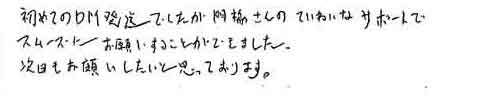 初めてのDM発送でしたが門脇さんのていねいなサポートで
スムーズにお願いすることができました。
次回もお願いしたいと思っております。